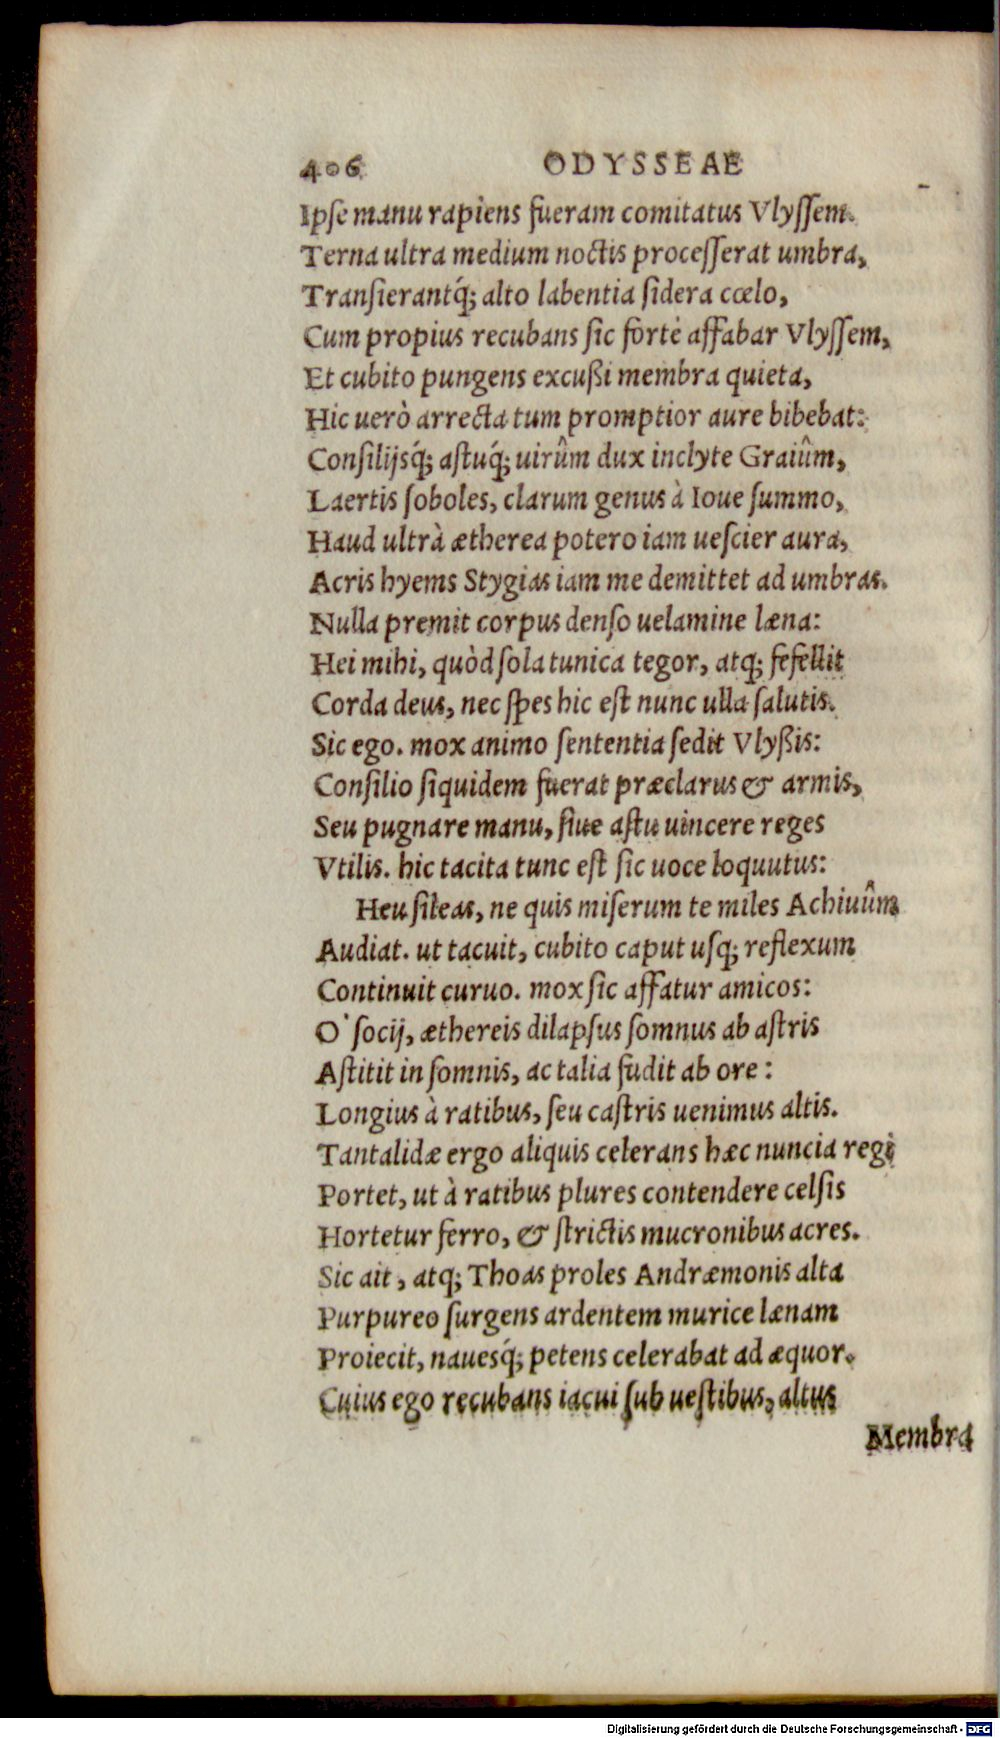 406 ODYSSEAE
Ipse manu rapiens fueram comitatus Vlyſſem.
Terna ultra medium noctis proceſſerat umbra,
Tranſierantq́; alto labentia ſidera cœlo,
Cum propius recubans ſic fortè affabar Vlyſſem,
Et cubito pungens excußi membra quieta,
Hic uerò arrecta tum promptior aure bibebat:
Conſilijsq́; aſtuq́; uirûm dux inclyte Graiûm,
Laertis ſoboles, clarum genus à Ioue ſummo,
Haud ultrà ætherea potero iam ueſcier aura,
Acris hyems Stygias iam me demittet ad umbras.
Nulla premit corpus denſo uelamine læna:
Hei mihi, quòd ſola tunica tegor, atq; fefellit
Corda deus, nec ſpes hic eſt nunc ulla ſalutis.
Sic ego. mox animo ſententia ſedit Vlyßis:
Conſilio ſiquidem fuerat præclarus & armis,
Seu pugnare manu, ſiue aſtu uincere reges
Vtilis. hic tacita tunc eſt ſic uoce loquutus:
Heu ſileas, ne quis miſerum te miles Achiuûm
Audiat. ut tacuit, cubito caput uſq; reflexum
Continuit curuo. mox ſic affatur amicos:
O' ſocij, æthereis dilapſus ſomnus ab aſtris
Aſtitit in ſomnis, ac talia fudit ab ore:
Longius à ratibus, ſeu caſtris uenimus altis.
Tantalidæ ergo aliquis celerans hæc nuncia regi
Portet, ut à ratibus plures contendere celſis
Hortetur ferro, & ſtrictis mucronibus acres.
Sic ait, atq; Thoas proles Andræmonis alta
Purpureo ſurgens ardentem murice lænam
Proiecit, nauesq́; petens celerabat ad æquor.
Cuius ego recubans iacui ſub ueſtibus, altus
Membra
Digitalisierung gefördert durch die Deutsche Forschungsgemeinschaft - DFG